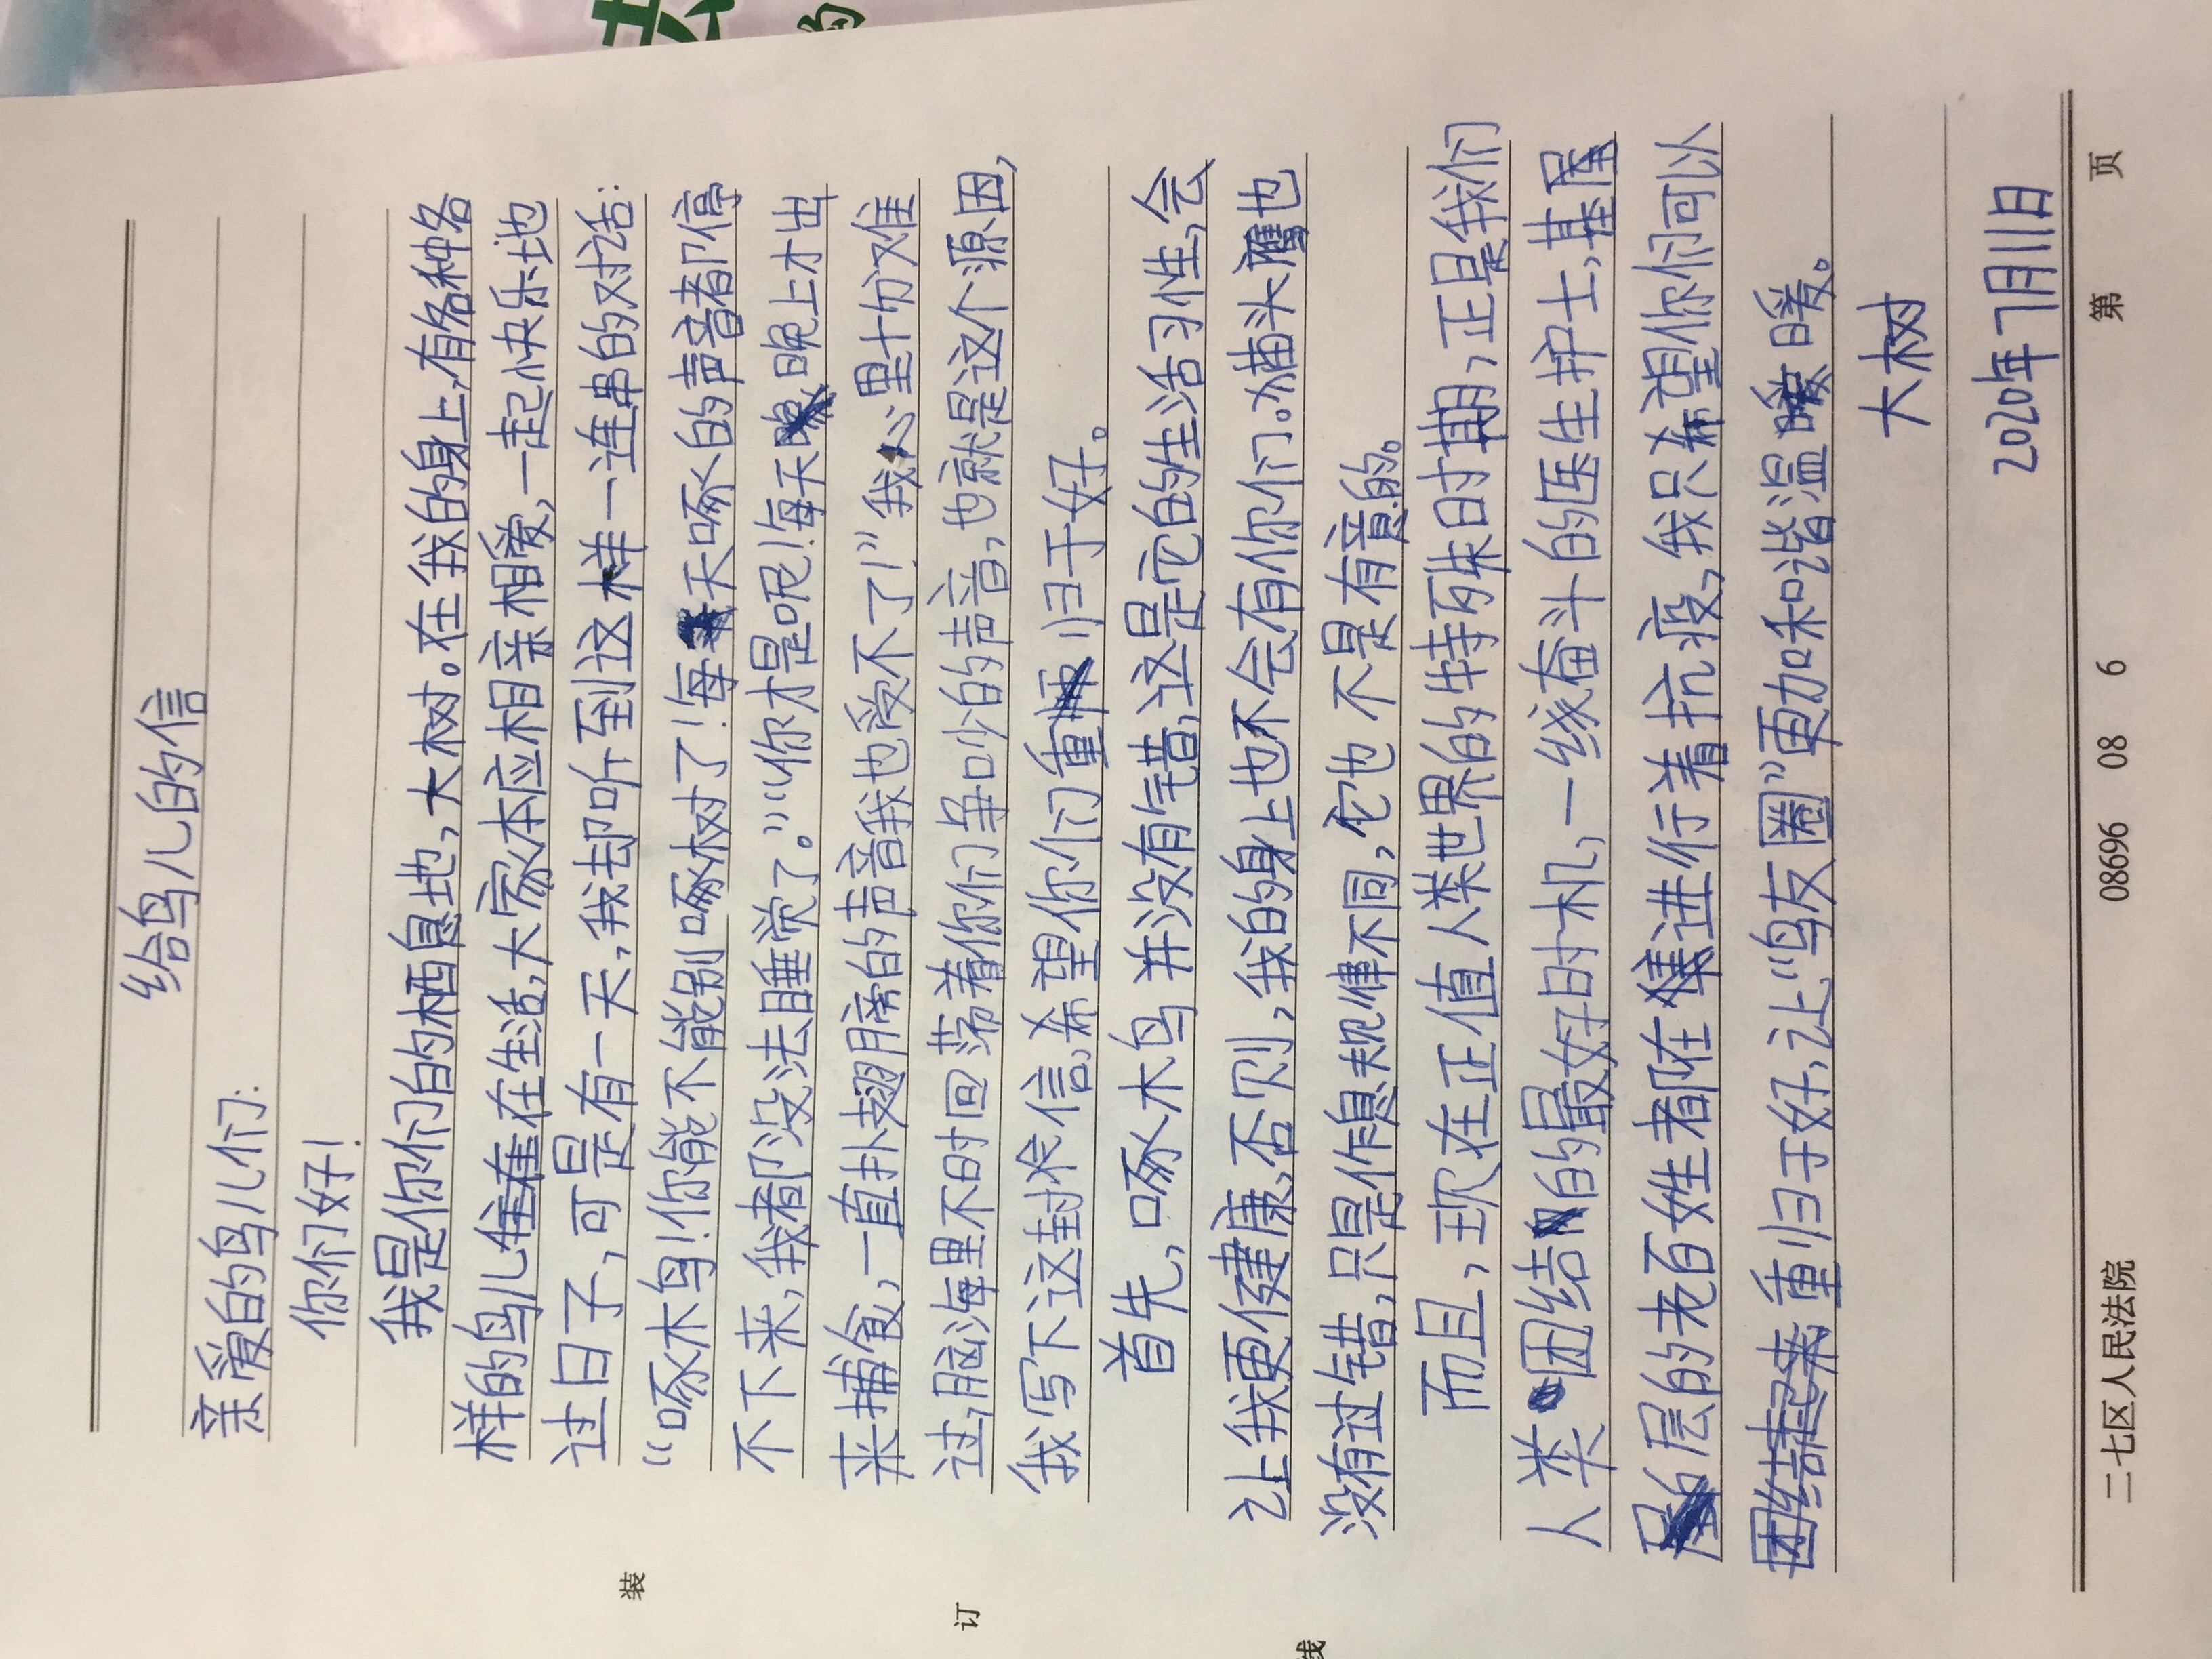 给鸟儿的信
亲爱的鸟儿们:
你们好!
我是你们的栖息地,大树。在我的身上,有各种各
样的鸟儿住在生活,大家本应相亲相爱,一起快乐地
过日子,可是有一天,我却听到这样一连串的对话:
“啄木鸟!你能不能别啄树了!每天啄人的声音都停
不下来,我都没法去睡觉了。”“你才是呢!每天晚上才出
来捕食,一直扑翅膀的声音我也受不了!”我心里十分难
过,脑海里不时回荡着你们争吵的声音,也就是这个原因,
我写下这封信,希望你们重归于好。
首先,啄木鸟并没有错,这是它的生活习性,会
让我更健康,否则,我的身上也不会有你们。猫头鹰也
没有过错,只是作息规律不同,它也不是有意的。
而且,现在正值人类世界的特殊时期,正是我们
人类团结的最好时机,一线奋斗的医生护士,基层
层的老百姓都在进行着抗疫,我只希望你们可以
团结起来,重归于好,让“鸟友圈”更加和谐温暖。
大树
2020年7月11日
二七区人民法院 08696 08 6 第 页
装
订
线